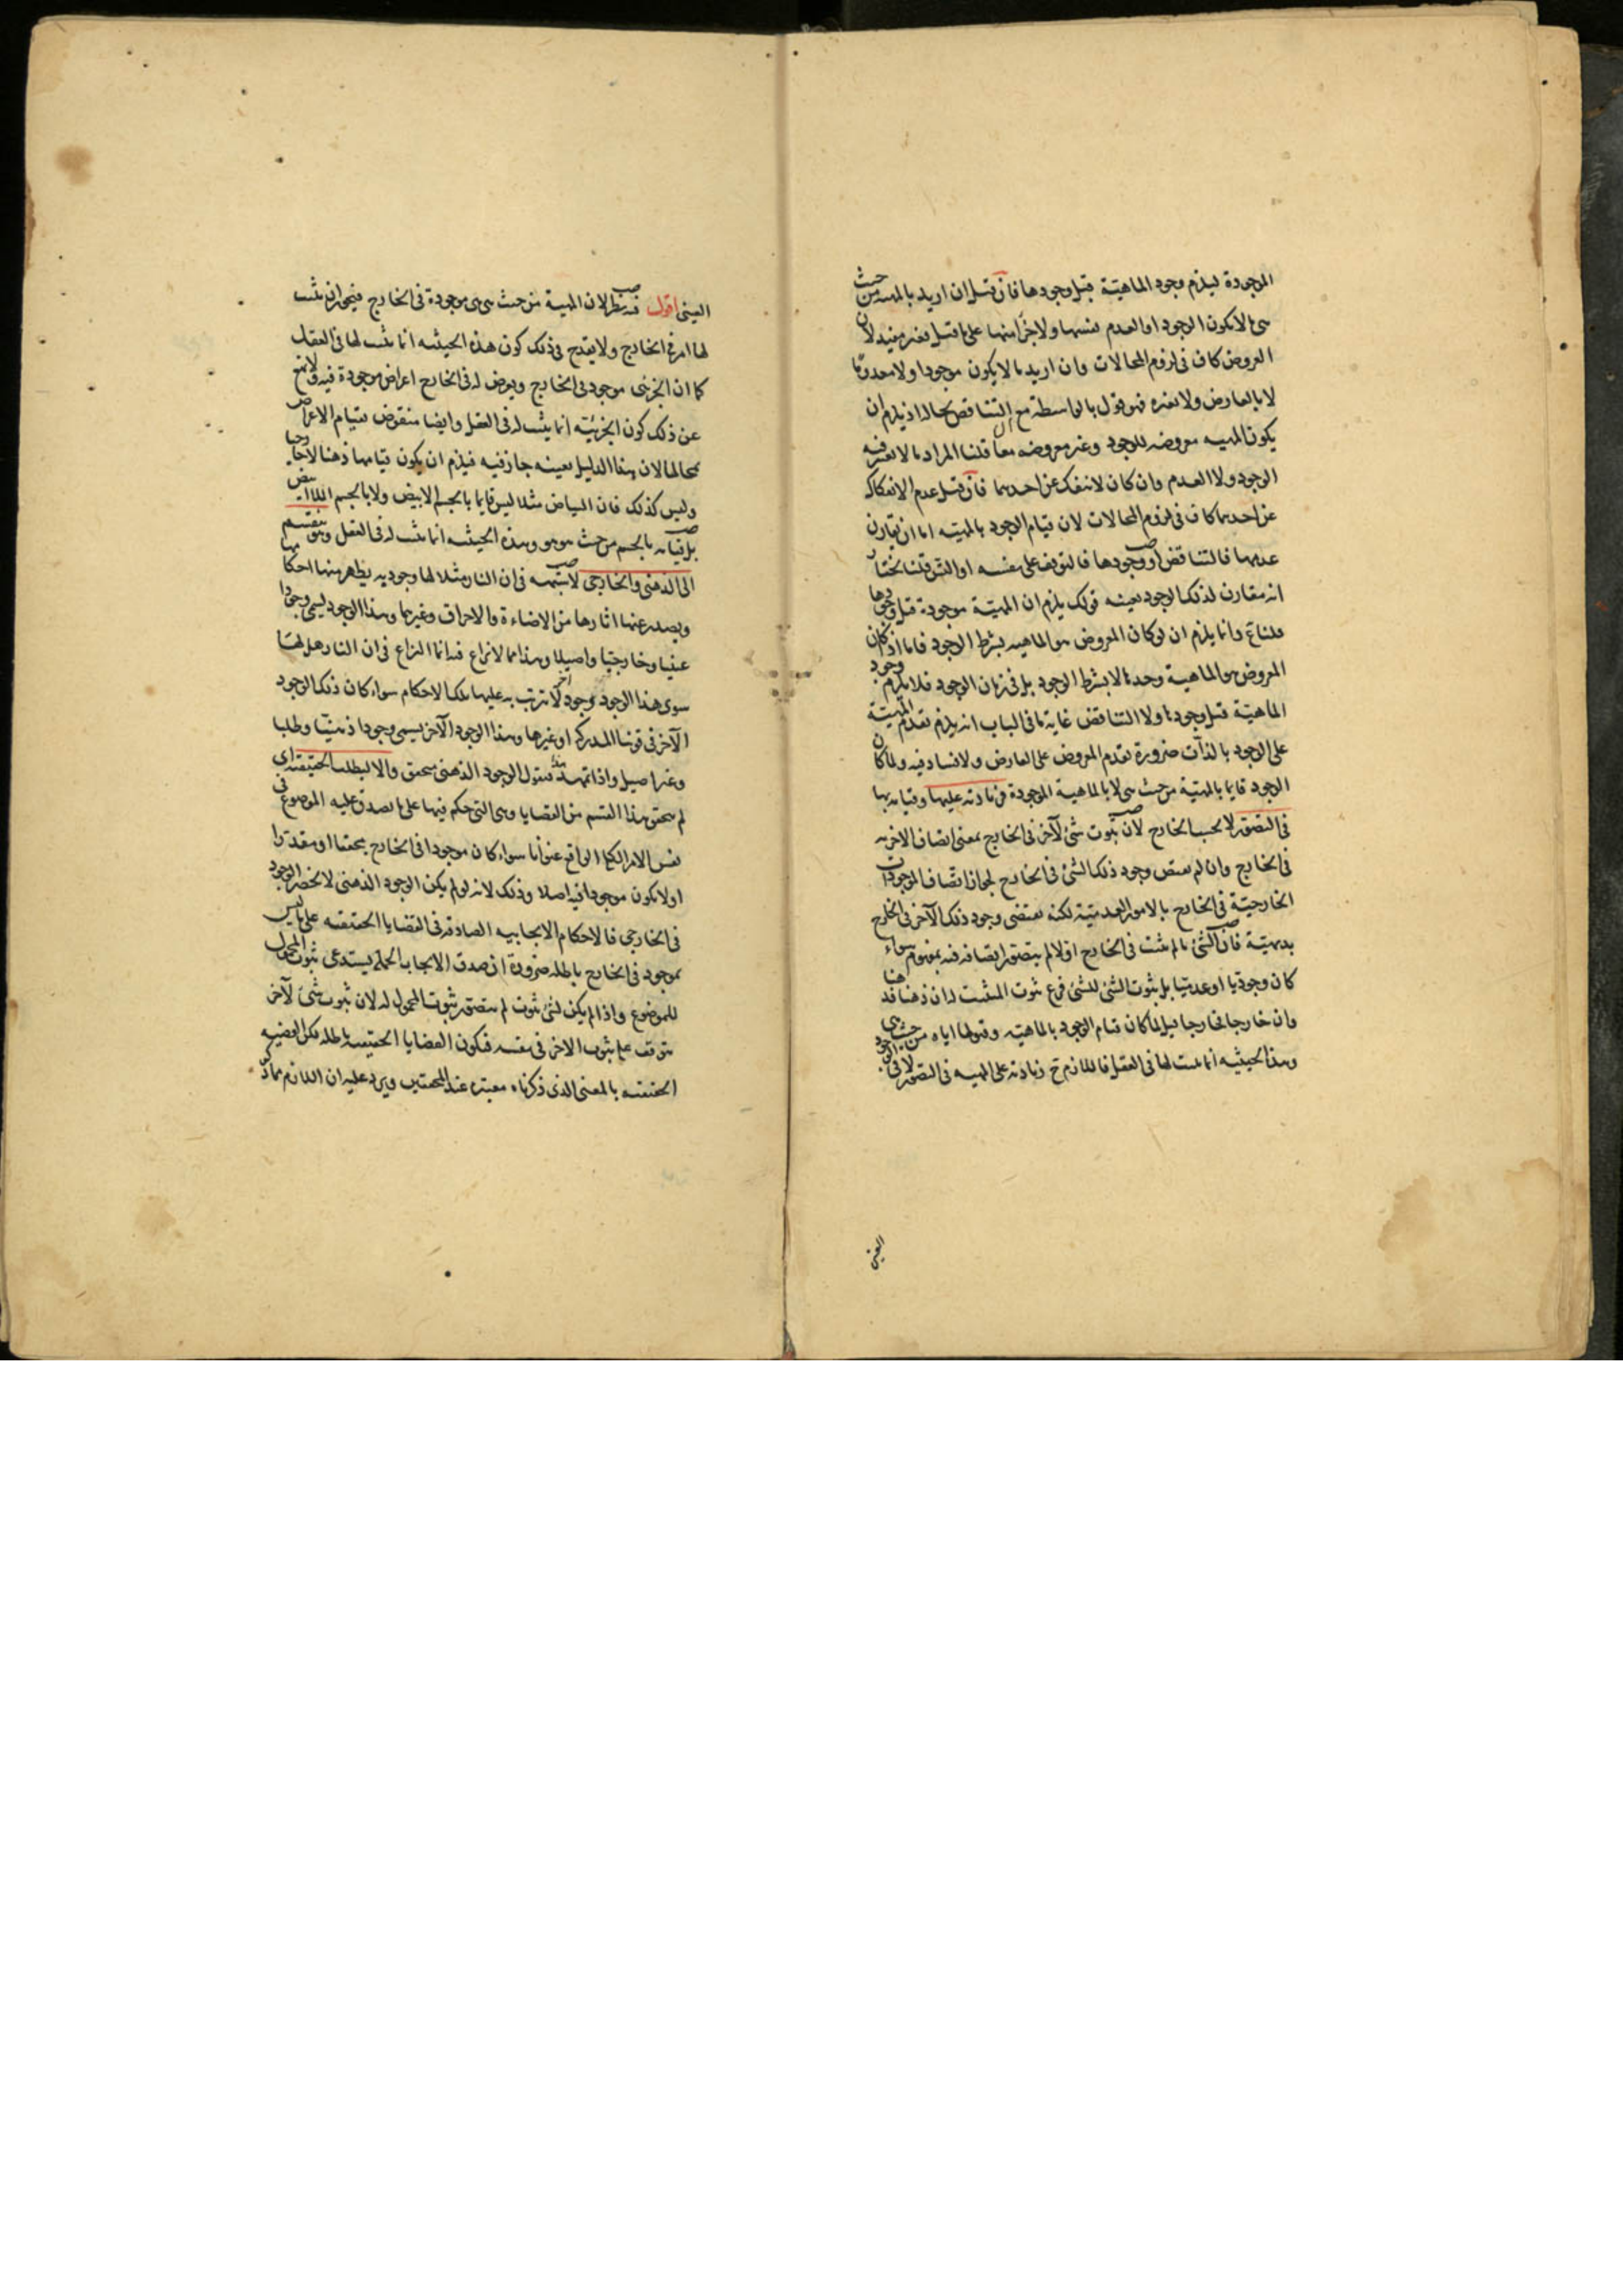 الموجودة فيلزم وجود الماهيّة قبل وجودها فان قيل ان اريد بالمهية من حيث
هى ما لا يكون الوجود او العدم نفسها ولا جزأ منها على ما قيل فغير مفيد لان
العروض كاف فى لزوم المحالات وان اريد ما لا يكون موجودا ولا معدوما
لا بالعارض ولا بغيره فهو قول بالواسطة مع ان التناقض بحاله اذ يلزم ان
يكون المهية معروضه للوجود وغير معروضه معا قلنا المراد ما لا يعتبر فيه
الوجود ولا العدم وان كان لا ينفك عن احدهما فان قيل عدم الانفكاك
عن احدهما كاف فى لزوم المحالات لان قيام الوجود بالمهيّه اما ان يقارن
عدمها فالتناقض او وجودها فالتوقف على نفسه او التس قلنا نختار
انه مقارن لذلك الوجود بعينه قولك يلزم ان المهيّة موجودة قبل وجودها
قلنا مم وانما يلزم ان لو كان المعروض هو الماهيه بشرط الوجود فاما اذا كان
المعروض هو الماهية وحدها لا بشرط الوجود بل فى زمان الوجود فلا يلزم وجود
الماهيّة قبل وجودها ولا التناقض غاية ما فى الباب انه يلزم تقدم المهيّة
على الوجود بالذات ضرورة تقدم المعروض على العارض ولا فساد فيه ولما كان
الوجود قايما بالمهيّة من حيث هى لا بالماهية الموجودة فزيادته عليها وقيامه بها
فى التصور لا بحسب الخارج لان ثبوت شئ لآخر فى الخارج بمعنى اتصاف الاخر به
فى الخارج وان لم يقتض وجود ذلك الشئ فى الخارج لجواز اتصاف الموجودات
الخارجيّة فى الخارج بالامور العدميّة لكنه يقتضى وجود ذلك الآخر فى الخارج
بديهيّة فان الشئ ما لم يثبت فى الخارج اولا لم يتصور اتصافه فيه بمفهوم سواء
كان وجوديا او عدميّا بل ثبوت الشئ للشئ فرع ثبوت المثبت له ان ذهنا فذهنا
وان خارجا فخارجا قيل لما كان قيام الوجود بالماهيّه وقبولها اياه من حيث هى
وهذه الحيثيه انما تثبت لها فى العقل فاللازم ح زيادته على المهيه فى التصور لا فى الوجود
العينى
العينى اقول فيه نظر لان المهية من حيث هى هى موجودة فى الخارج فيجوز ان يثبت
لها امر فى الخارج ولا يقدح فى ذلك كون هذه الحيثيه انما يثبت لها فى العقل
كما ان الجزئى موجود فى الخارج ويعرض له فى الخارج اعراض موجودة فيه ولا يمنع
عن ذلك كون الجزئيّه انما يثبت له فى العقل وايضا منقوض بقيام الاعراض
بمحالها لان هذا الدليل بعينه جار فيه فيلزم ان يكون قيامها ذهنا لا خارجيا
وليس كذلك فان البياض مثلا ليس قايما بالجسم الابيض ولا بالجسم اللاابيض
بل قيامه بالجسم من حيث هو هو وهذه الحيثيه انما يثبت له فى العقل وهو ينقسم
الى الذهنى والخارجى لا شبهه فى ان النار مثلا لها وجود به يظهر منها احكامها
ويصدر عنها اثارها من الاضاءة والاحراق وغيرهما وهذا الوجود يسمى وجودا
عينيا وخارجيا واصيلا وهذا مما لا نزاع فيه انما النزاع فى ان النار هل لها
سوى هذا الوجود وجود آخر لا يترتب به عليها تلك الاحكام سواء كان ذلك الوجود
الآخر فى قوتنا المدركه او غيرها وهذا الوجود الآخر يسمى وجودا ذهنيّا وظليا
وغير اصيل واذا تمهد هذا فنقول الوجود الذهنى متحقق والا لبطلت الحقيقيه اى
لم يتحقق هذا القسم من القضايا وهى التى حكم فيها على ما يصدق عليه الموضوع فى
نفس الامر الكلى الواقع عنوانا سواء كان موجودا فى الخارج محققا او مقدّرا
او لا يكون موجودا فيه اصلا وذلك لانه لو لم يكن الوجود الذهنى لانحصر الوجود
فى الخارجى فالاحكام الايجابيه الصادقه فى القضايا الحقيقيه على ما ليس
بموجود فى الخارج باطله ضرورة ان صدق الايجاب الحملى يستدعى ثبوت المحمول
للموضوع واذا لم يكن لشئ ثبوت لم يتصور ثبوت المحمول له لان ثبوت شئ لآخر
يتوقف على ثبوت الاخر فى نفسه فيكون القضايا الحقيقيه باطله لكن القضيه
الحقيقيه بالمعنى الذى ذكرناه معتبره عند المحققين ويرد عليه ان اللازم مما ذكر